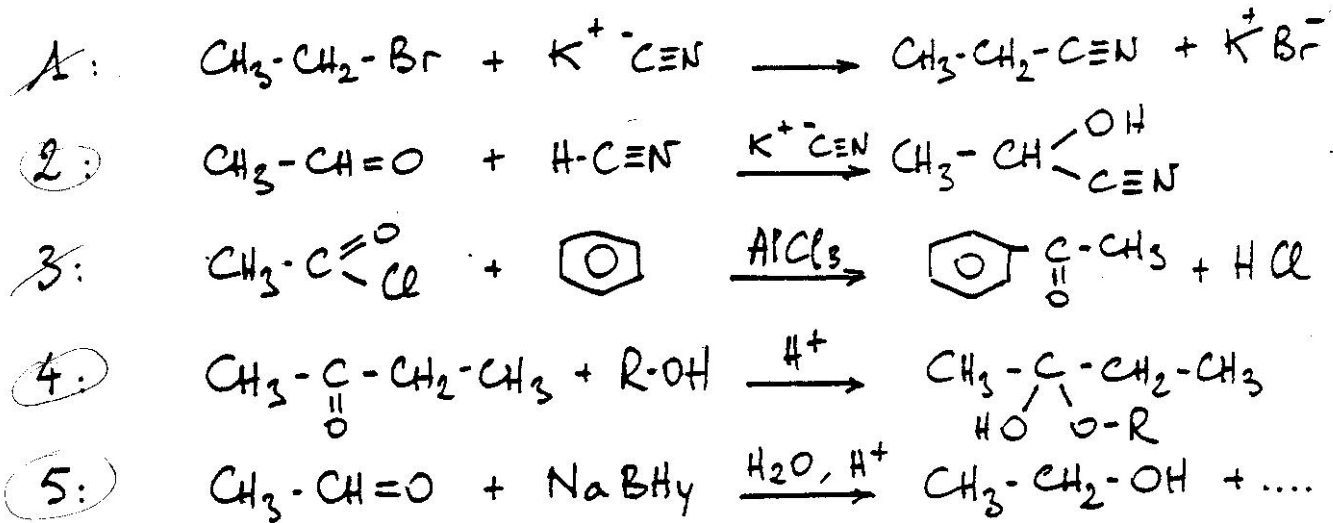 1: CH3-CH2-Br + K+ -C≡N ⟶ CH3-CH2-C≡N + K+Br-
2: CH3-CH=O + H-C≡N K+ -C≡N ⟶ CH3-CH OH C≡N
3: CH3-C O Cl + AlCl3 ⟶ C-CH3 O + HCl
4: CH3-C-CH2-CH3 O + R-OH H+ ⟶ CH3-C-CH2-CH3 HO O-R
5: CH3-CH=O + NaBH4 H2O, H+ ⟶ CH3-CH2-OH + ....